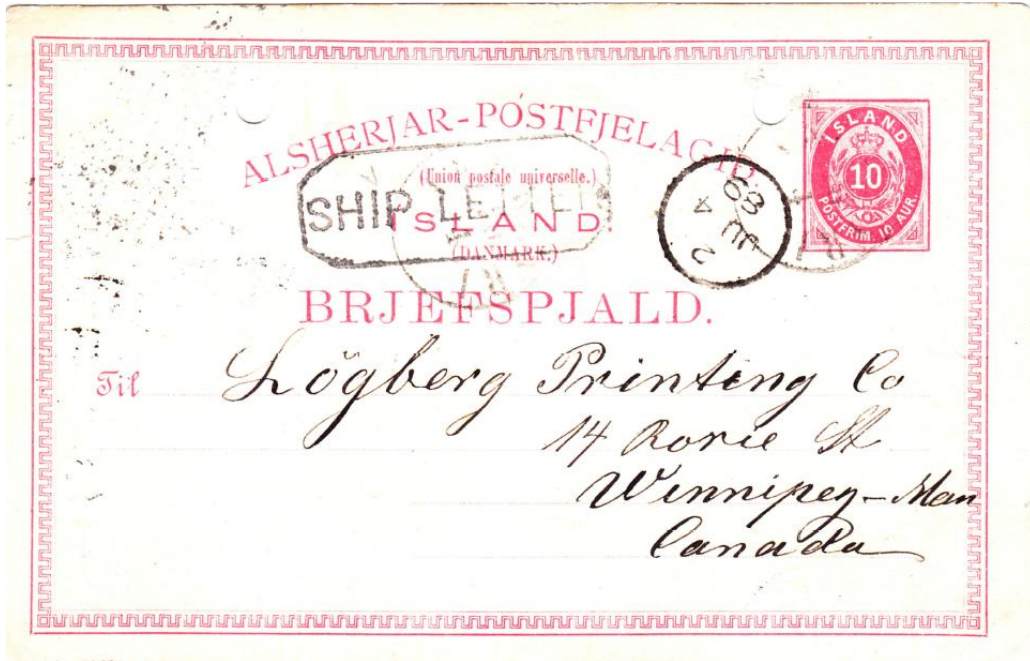 ALSHERJAR-PÓSTFJELAGID
(Union postale universelle.)
SHIP LETTER
ISLAND.
(DANMARK.)
BRJEFSPJALD.
ISLAND
10
POSTFRIM. 10 AUR.
JU 4
89
2
Til Lögberg Printing Co
14 Rorie St
Winnipeg - Man
Canada